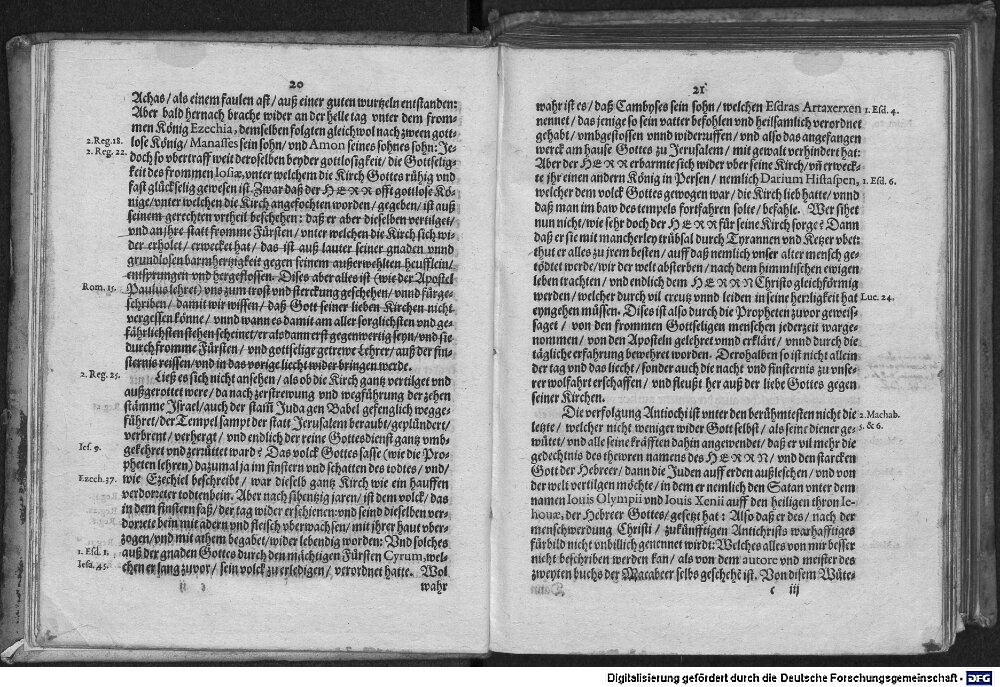 20
Achas / als einem faulen ast / auß einer guten wurtzeln entstanden:
Aber bald hernach brache wider an der helle tag vnter dem from-
men König Ezechia, demselben folgten gleichwol nach zween gott-
2. Reg. 18. lose König / Manasses sein sohn / vnd Amon seines sohnes sohn: Je-
2. Reg. 22. doch so vbertraff weit deroselben beyder gottlosigkeit / die Gottselig-
keit des frommen Iosiæ, vnter welchem die Kirch Gottes rühig vnd
fast glückselig gewesen ist. Zwar daß der HERR offt gottlose Kö-
nige / vnter welchen die Kirch angefochten worden / gegeben / ist auß
seinem gerechten vrtheil beschehen: daß er aber dieselben vertilget /
vnd an jhre statt fromme Fürsten / vnter welchen die Kirch sich wi-
der erholet / erwecket hat / das ist auß lauter seiner gnaden vnnd
grundlosen barmhertzigkeit gegen seinem außerwehlten heufflein /
entsprungen vnd hergeflossen. Dises aber alles ist (wie der Apostel
Rom. 15. Paulus lehret) vns zum trost vnd sterckung geschehen / vnnd fürge-
schriben / damit wir wissen / daß Gott seiner lieben Kirchen nicht
vergessen könne / vnnd wann es damit am aller sorglichsten vnd ge-
fährlichsten stehen scheinet / er alsdann erst gegenwertig seyn / vnd sie
durch fromme Fürsten / vnd gottselige getrewe Lehrer / auß der fin-
sternis reissen / vnd in das vorige liecht wider bringen werde.
2. Reg. 25. Ließ es sich nicht ansehen / als ob die Kirch gantz vertilget vnd
außgerottet were / da nach zerstrewung vnd wegführung der zehen
stämme Jsrael / auch der stam̃ Juda gen Babel gefenglich wegge-
führet / der Tempel sampt der statt Jerusalem beraubt / geplündert /
verbrent / verhergt / vnd endlich der reine Gottesdienst gantz vmb-
Ies. 9. gekehret vnd zerrüttet ward? Das volck Gottes sasse (wie die Pro-
pheten lehren) dazumal ja im finstern vnd schatten des todtes / vnd /
Ezech. 37. wie Ezechiel beschreibt / war dieselb gantz Kirch wie ein hauffen
verdorreter todtenbein. Aber nach sibentzig jaren / ist dem volck / das
in dem finstern saß / der tag wider erschienen: vnd seind dieselben ver-
dorrete bein mit adern vnd fleisch vberwachsen / mit jhrer haut vber-
zogen / vnd mit athem begabet / wider lebendig worden: Vnd solches
1. Esd. 1. auß der gnaden Gottes durch den mächtigen Fürsten Cyrum, wel-
Iesa. 45. chen er lang zuvor / sein volck zu erledigen / verordnet hatte. Wol
c ij wahr
21
wahr ist es / daß Cambyses sein sohn / welchen Esdras Artaxerxen 1. Esd. 4.
nennet / das jenige so sein vatter befohlen vnd heilsamlich verordnet
gehabt / vmbgestossen vnnd widerruffen / vnd also das angefangen
werck am hause Gottes zu Jerusalem / mit gewalt verhindert hat:
Aber der HERR erbarmte sich wider vber seine Kirch / vñ erweck-
te jhr einen andern König in Persen / nemlich Darium Histaspen, 1. Esd. 6.
welcher dem volck Gottes gewogen war / die Kirch lieb hatte / vnnd
daß man im baw des tempels fortfahren solte / befahle. Wer sihet
nun nicht / wie sehr doch der HERR für seine Kirch sorge? Dann
daß er sie mit mancherley trübsal durch Tyrannen vnd Ketzer vbet:
thut er alles zu jrem besten / auff daß nemlich vnser alter mensch ge-
tödtet werde / wir der welt absterben / nach dem himmlischen ewigen
leben trachten / vnd endlich dem HERRN Christo gleichförmig
werden / welcher durch vil creutz vnnd leiden in seine herligkeit hat Luc. 24.
eyngehen müssen. Dises ist also durch die Propheten zuvor geweis-
saget / von den frommen Gottseligen menschen jederzeit warge-
nommen / von den Aposteln gelehret vnnd erklärt / vnnd durch die
tägliche erfahrung bewehret worden. Derohalben so ist nicht allein
der tag vnd das liecht / sonder auch die nacht vnd finsternis zu vnse-
rer wolfahrt erschaffen / vnd fleußt her auß der liebe Gottes gegen
seiner Kirchen.
Die verfolgung Antiochi ist vnter den berühmtesten nicht die 2. Machab.
letzte / welcher nicht weniger wider Gott selbst / als seine diener ge- 5. & 6.
wütet / vnd alle seine kräfften dahin angewendet / daß er vil mehr die
gedechtnis des thewren namens des HERRN / vnd den starcken
Gott der Hebreer / dann die Juden auff erden außleschen / vnd von
der welt vertilgen möchte / in dem er nemlich den Satan vnter dem
namen Iouis Olympii vnd Iouis Xenii auff den heiligen thron Ie-
houæ, der Hebreer Gottes / gesetzt hat: Also daß er des / nach der
menschwerdung Christi / zukünfftigen Antichrists warhafftiges
fürbild nicht vnbillich genennet wirdt: Welches alles von mir besser
nicht beschriben werden kan / als von dem autore vnd meister des
zweyten buchs der Macabeer selbs geschehẽ ist. Von disem Wüte-
c iij
Digitalisierung gefördert durch die Deutsche Forschungsgemeinschaft - DFG